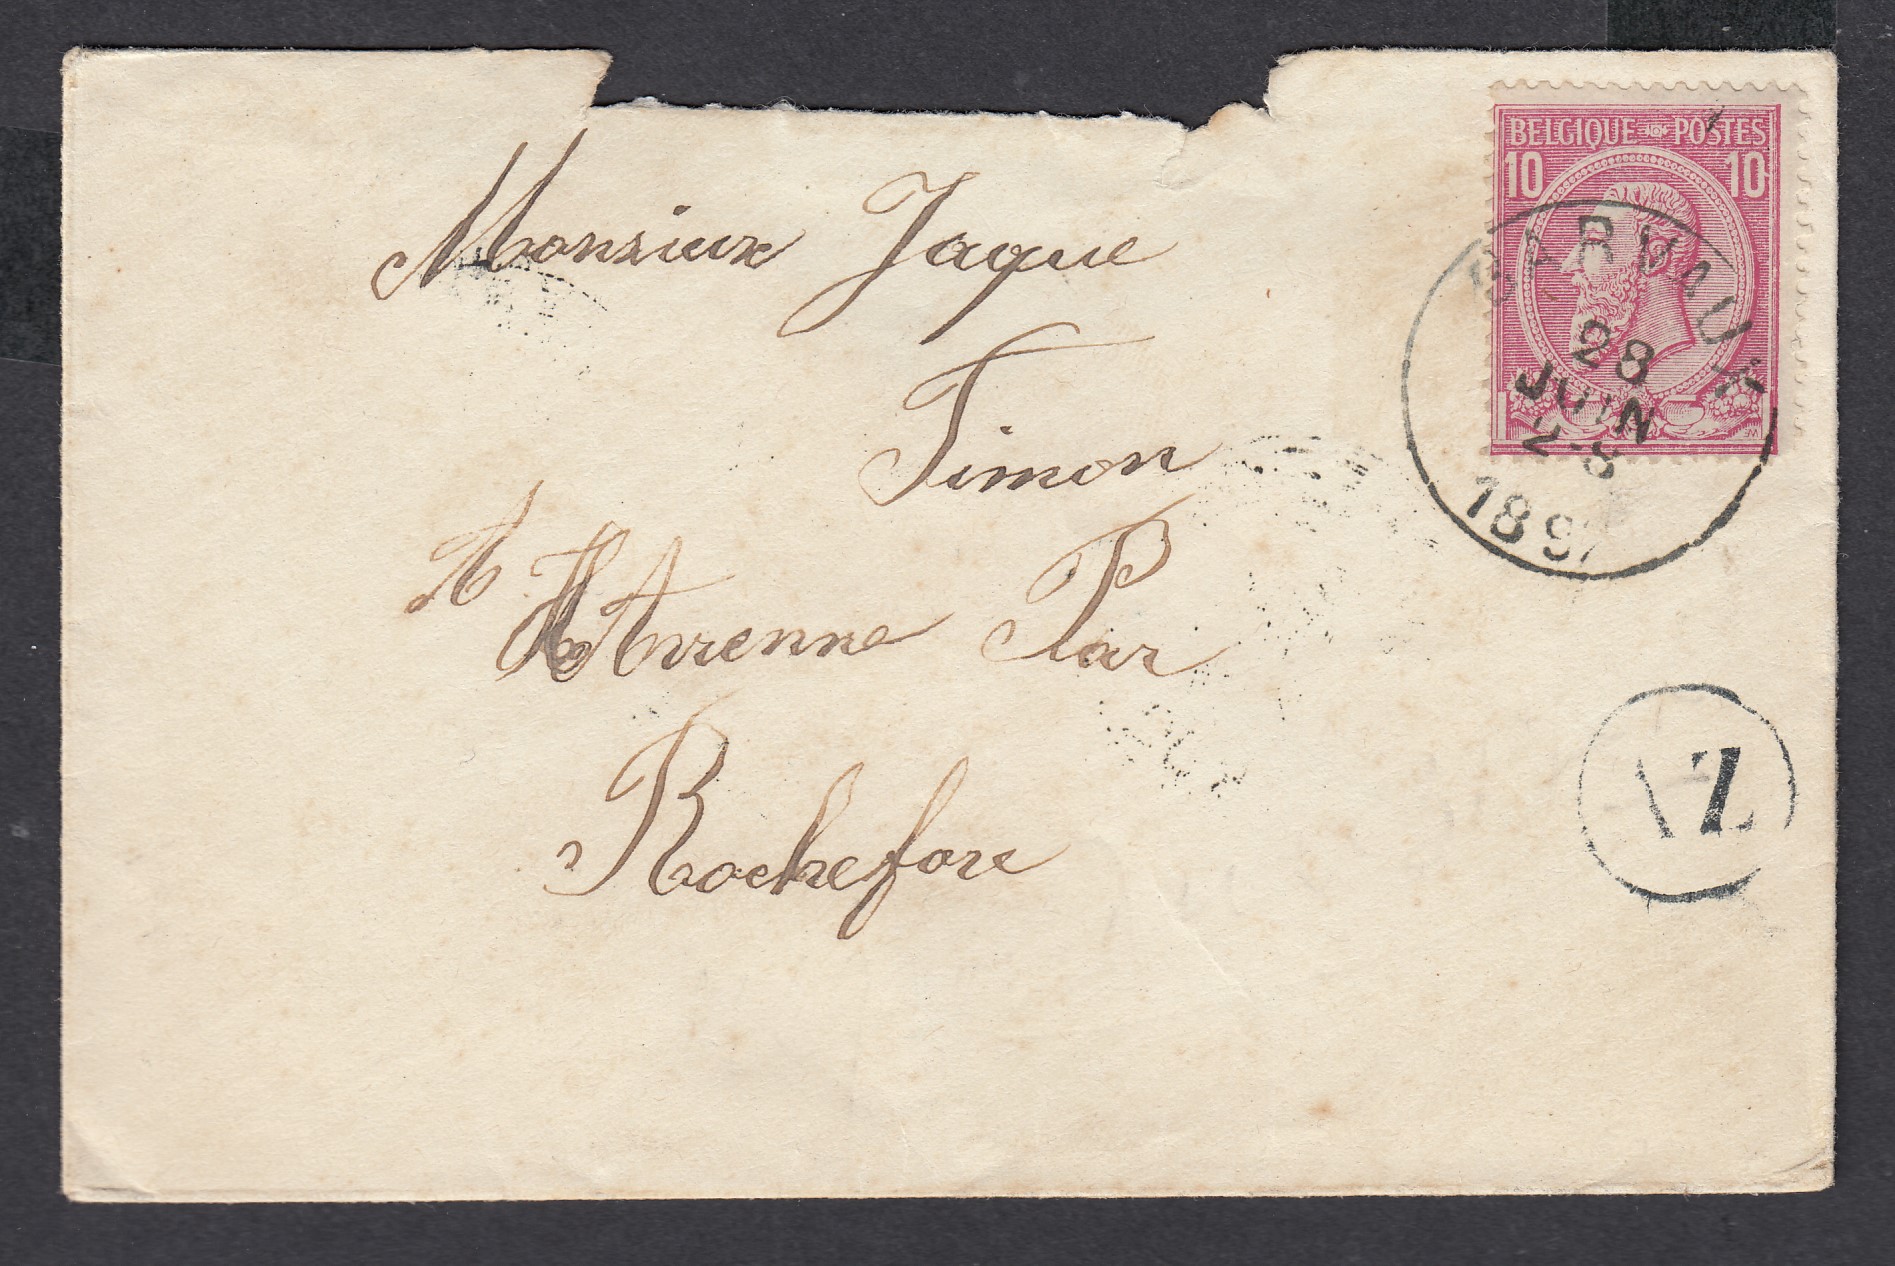 BELGIQUE POSTES
10 10
BARVAUX
28
JUIN
2-8
189
Monsieur Jaque
Simon
A Havrenne Par
Rochefore
Z